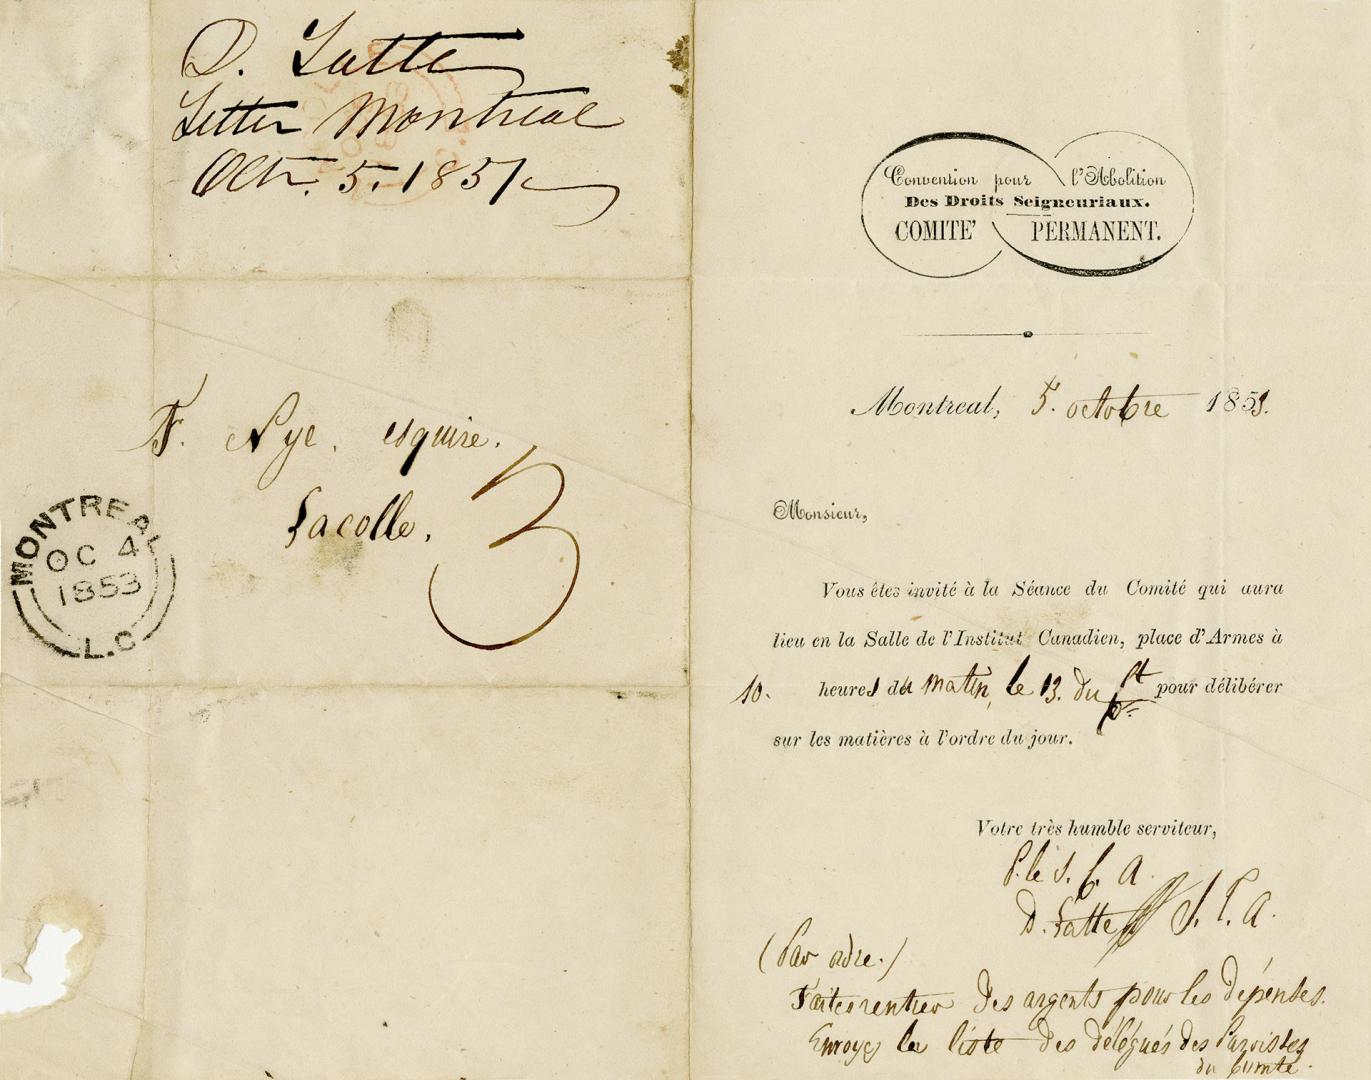 D. Latte
Letter Montreal
Octr. 5. 1851
F. Nye. esquire.
Lacolle.
3
MONTREAL
OC 4
1853
L.C
Convention pour l'Abolition
Des Droits Seigneuriaux.
COMITE' PERMANENT.
Montreal, 5. octobre 1853.
Monsieur,
Vous êtes invité à la Séance du Comité qui aura
lieu en la Salle de l'Institut Canadien, place d'Armes à
10. heures du matin, le 13. du pour délibérer
sur les matières à l'ordre du jour.
Votre très humble serviteur,
P. le S. C. A.
D. Latte S. C. A.
(Par ordre.)
Faites rentrer des argents pour les dépenses.
Envoyez la liste des délégués des Paroisses
du Comté.